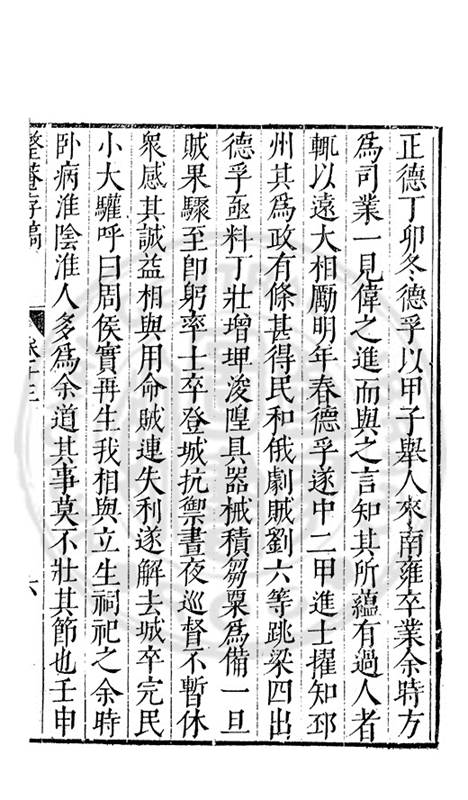 正德丁卯冬德孚以甲子舉人來南雍卒業余時方
為司業一見偉之進而與之言知其所蘊有過人者
輒以遠大相勵明年春德孚遂中二甲進士擢知邳
州其為政有條甚得民和俄劇賊劉六等跳梁四出
德孚亟料丁壯增埤浚隍具器械積芻粟為備一旦
賊果驟至即躬率士卒登城抗禦晝夜巡督不暫休
衆感其誠益相與用命賊連失利遂解去城卒完民
小大驩呼曰周侯實再生我相與立生祠祀之余時
卧病淮陰淮人多為余道其事莫不壯其節也壬申
整菴存稿
卷十三
六